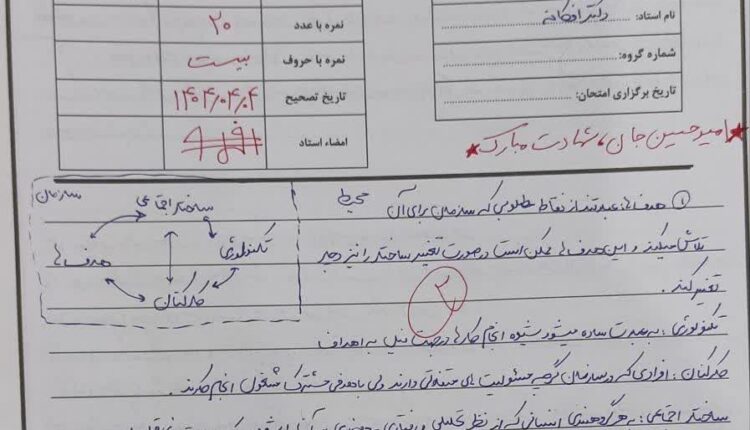 نام استاد: دکتر افکانه
شماره گروه:
تاریخ برگزاری امتحان:
نمره با عدد ۲۰
نمره با حروف بیست
تاریخ تصحیح ۱۴۰۴/۰۴/۰۴
امضاء استاد
امیرحسین جان، شهادت مبارک
سازمان
محیط
ساختار اجتماعی
تکنولوژی
هدف ها
کارکنان
① هدف ها: عبارتند از نقاط مطلوبی که سازمان برای آن
تلاش میکند و این هدف ها ممکن است در صورت تغییر ساختار را نیز دچار
تغییر کند.
۲
تکنولوژی: به عبارت ساده میشود شیوه انجام کارها در جهت نیل به اهداف
کارکنان: افرادی که در سازمان گرچه مسئولیت های متفاوتی دارند ولی با هدفی مشترک مشغول انجام کارند.
ساختار اجتماعی: به هر گروهبندی انسانی که از نظر تحلیلی و رفتاری